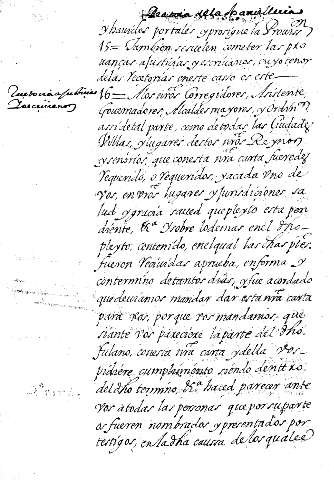 Practica de la Chancilleria
y havidos por tales, y prosigue la Provisn
15= Tambien se suelen cometer las pro
vanças a Justicias y escrivanos, cuyo tenor
de las Rectorias en este caso es este
Receptoria a Justicias
y escrivanos
16= A los nros Corregidores, Asistente,
Governadores, Alcaldes mayores, y Ordins
assi de tal parte, como de todas las Ciudades
Villas, y lugares destos nros Reynos
y señorios, que con esta nra carta fueredes
requerido, o requeridos, y a cada uno de
vos, en vros lugares y Jurisdiciones sa
lud y gracia saved que pleyto esta pen
diente, &a y sobre lo demas en el dho
pleyto, contenido, en el qual las dhas ptes
fueron recividas a prueba, en forma y
con termino de tantos dias, y fue acordado
que deviamos mandar dar esta nra carta
para vos, por que vos mandamos, que
si ante vos pareciere la parte del dho
fulano, con esta nra carta y della vos
pidiere cumplimiento siendo dentro
del dho termino, &a haced parecer ante
vos a todas las personas que por su parte
os fueren nombrados y presentados por
testigos, en la dha caussa de los quales